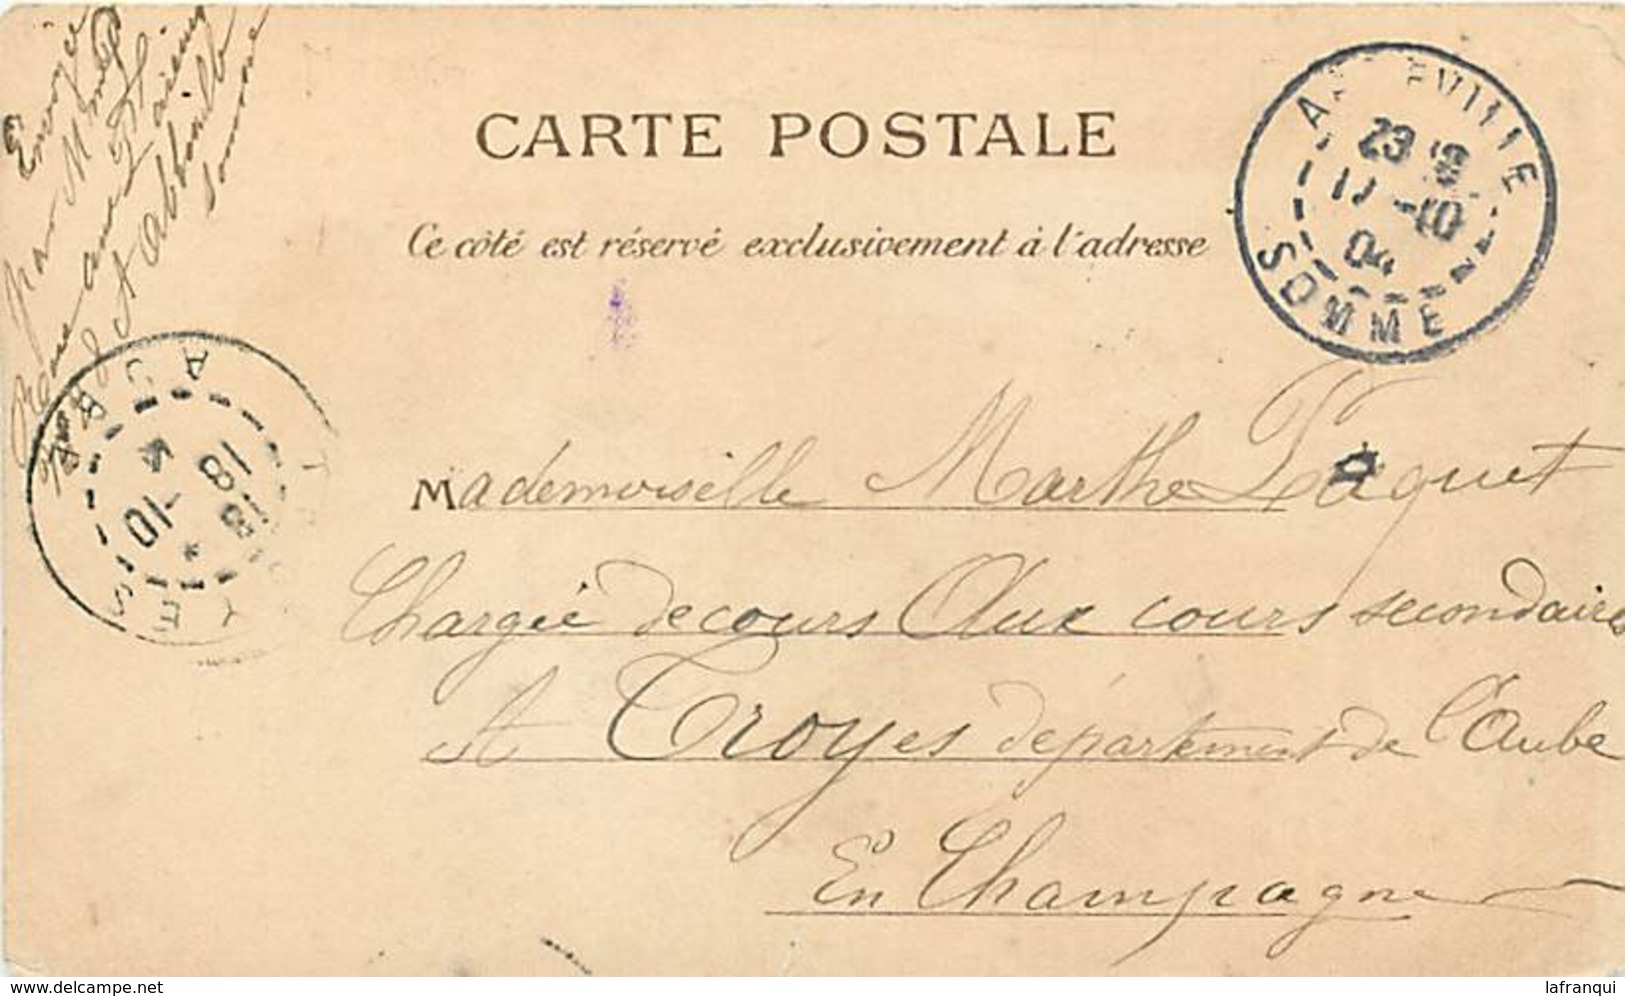 Envoyée
par Mme
Abbeville
Somme
CARTE POSTALE
Ce côté est réservé exclusivement à l'adresse
ABBEVILLE
23
17 -10
04
SOMME
AUBE
18
-10
TROYES
Mademoiselle Marthe Paquet
Chargée de cours Aux cours secondaires
A Troyes département de l'Aube
En Champagne
www.delcampe.net
lafranqui